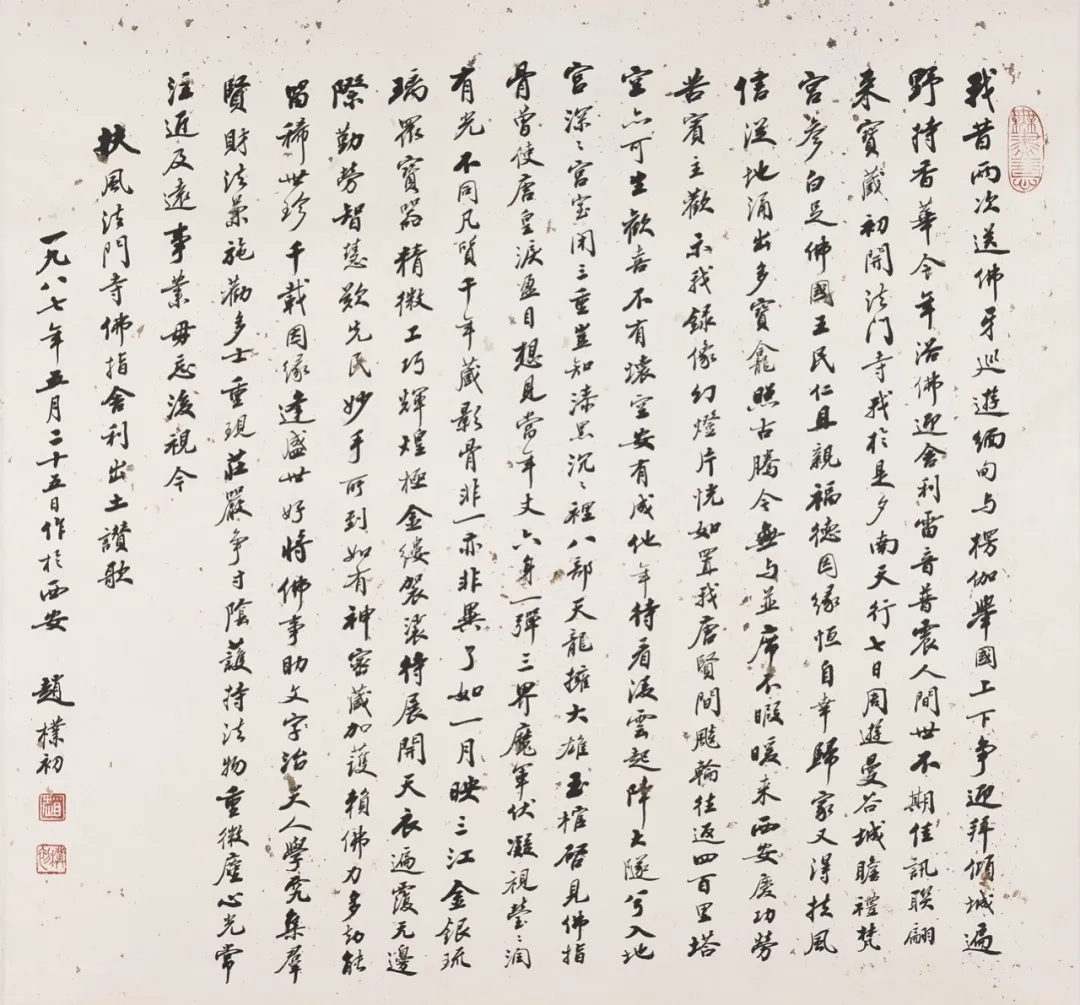 我昔兩次送佛牙巡遊緬甸与楞伽舉國上下争迎拜傾城遍
野持香華今年浴佛迎舍利雷音普震人間世不期佳訊聯翩
来寶藏初開法门寺我於是夕南天行七日周遊曼谷城瞻禮梵
宫参白足佛國王民仁且親福德因缘恒自幸歸家又得扶風
信従地涌出多寶龕照古騰今無与並席不暇暖来西安慶功勞
苦賓主歡示我録像幻燈片恍如置我唐賢間飈輪往返四百里塔
空亦可生歡喜不有壞空安有成他年待看淩雲起降大隧兮入地
宫深〻宫室闭三重豈知漆黑沉〻裡八部天龍擁大雄玉棺啓見佛指
骨曾使唐皇淚盈目想見當年丈六身一彈三界魔軍伏凝視瑩〻润
有光不同凡質千年藏影骨非一亦非異了如一月映三江金銀琉
璃衆寶器精微工巧輝煌極金縷袈裟待展開天衣遍覆无邊
際勤勞智慧歎先民妙手所到如有神密藏加護賴佛力多劫能
留稀世珍千載因缘逢盛世好將佛事助文字治天人學究集羣
賢財法兼施勸多士重現莊嚴争寸陰護持法物重微塵心光常
注近及遠事業毋忘後視今
扶風法門寺佛指舍利出土讃歌
一九八七年五月二十五日作於西安 趙樸初